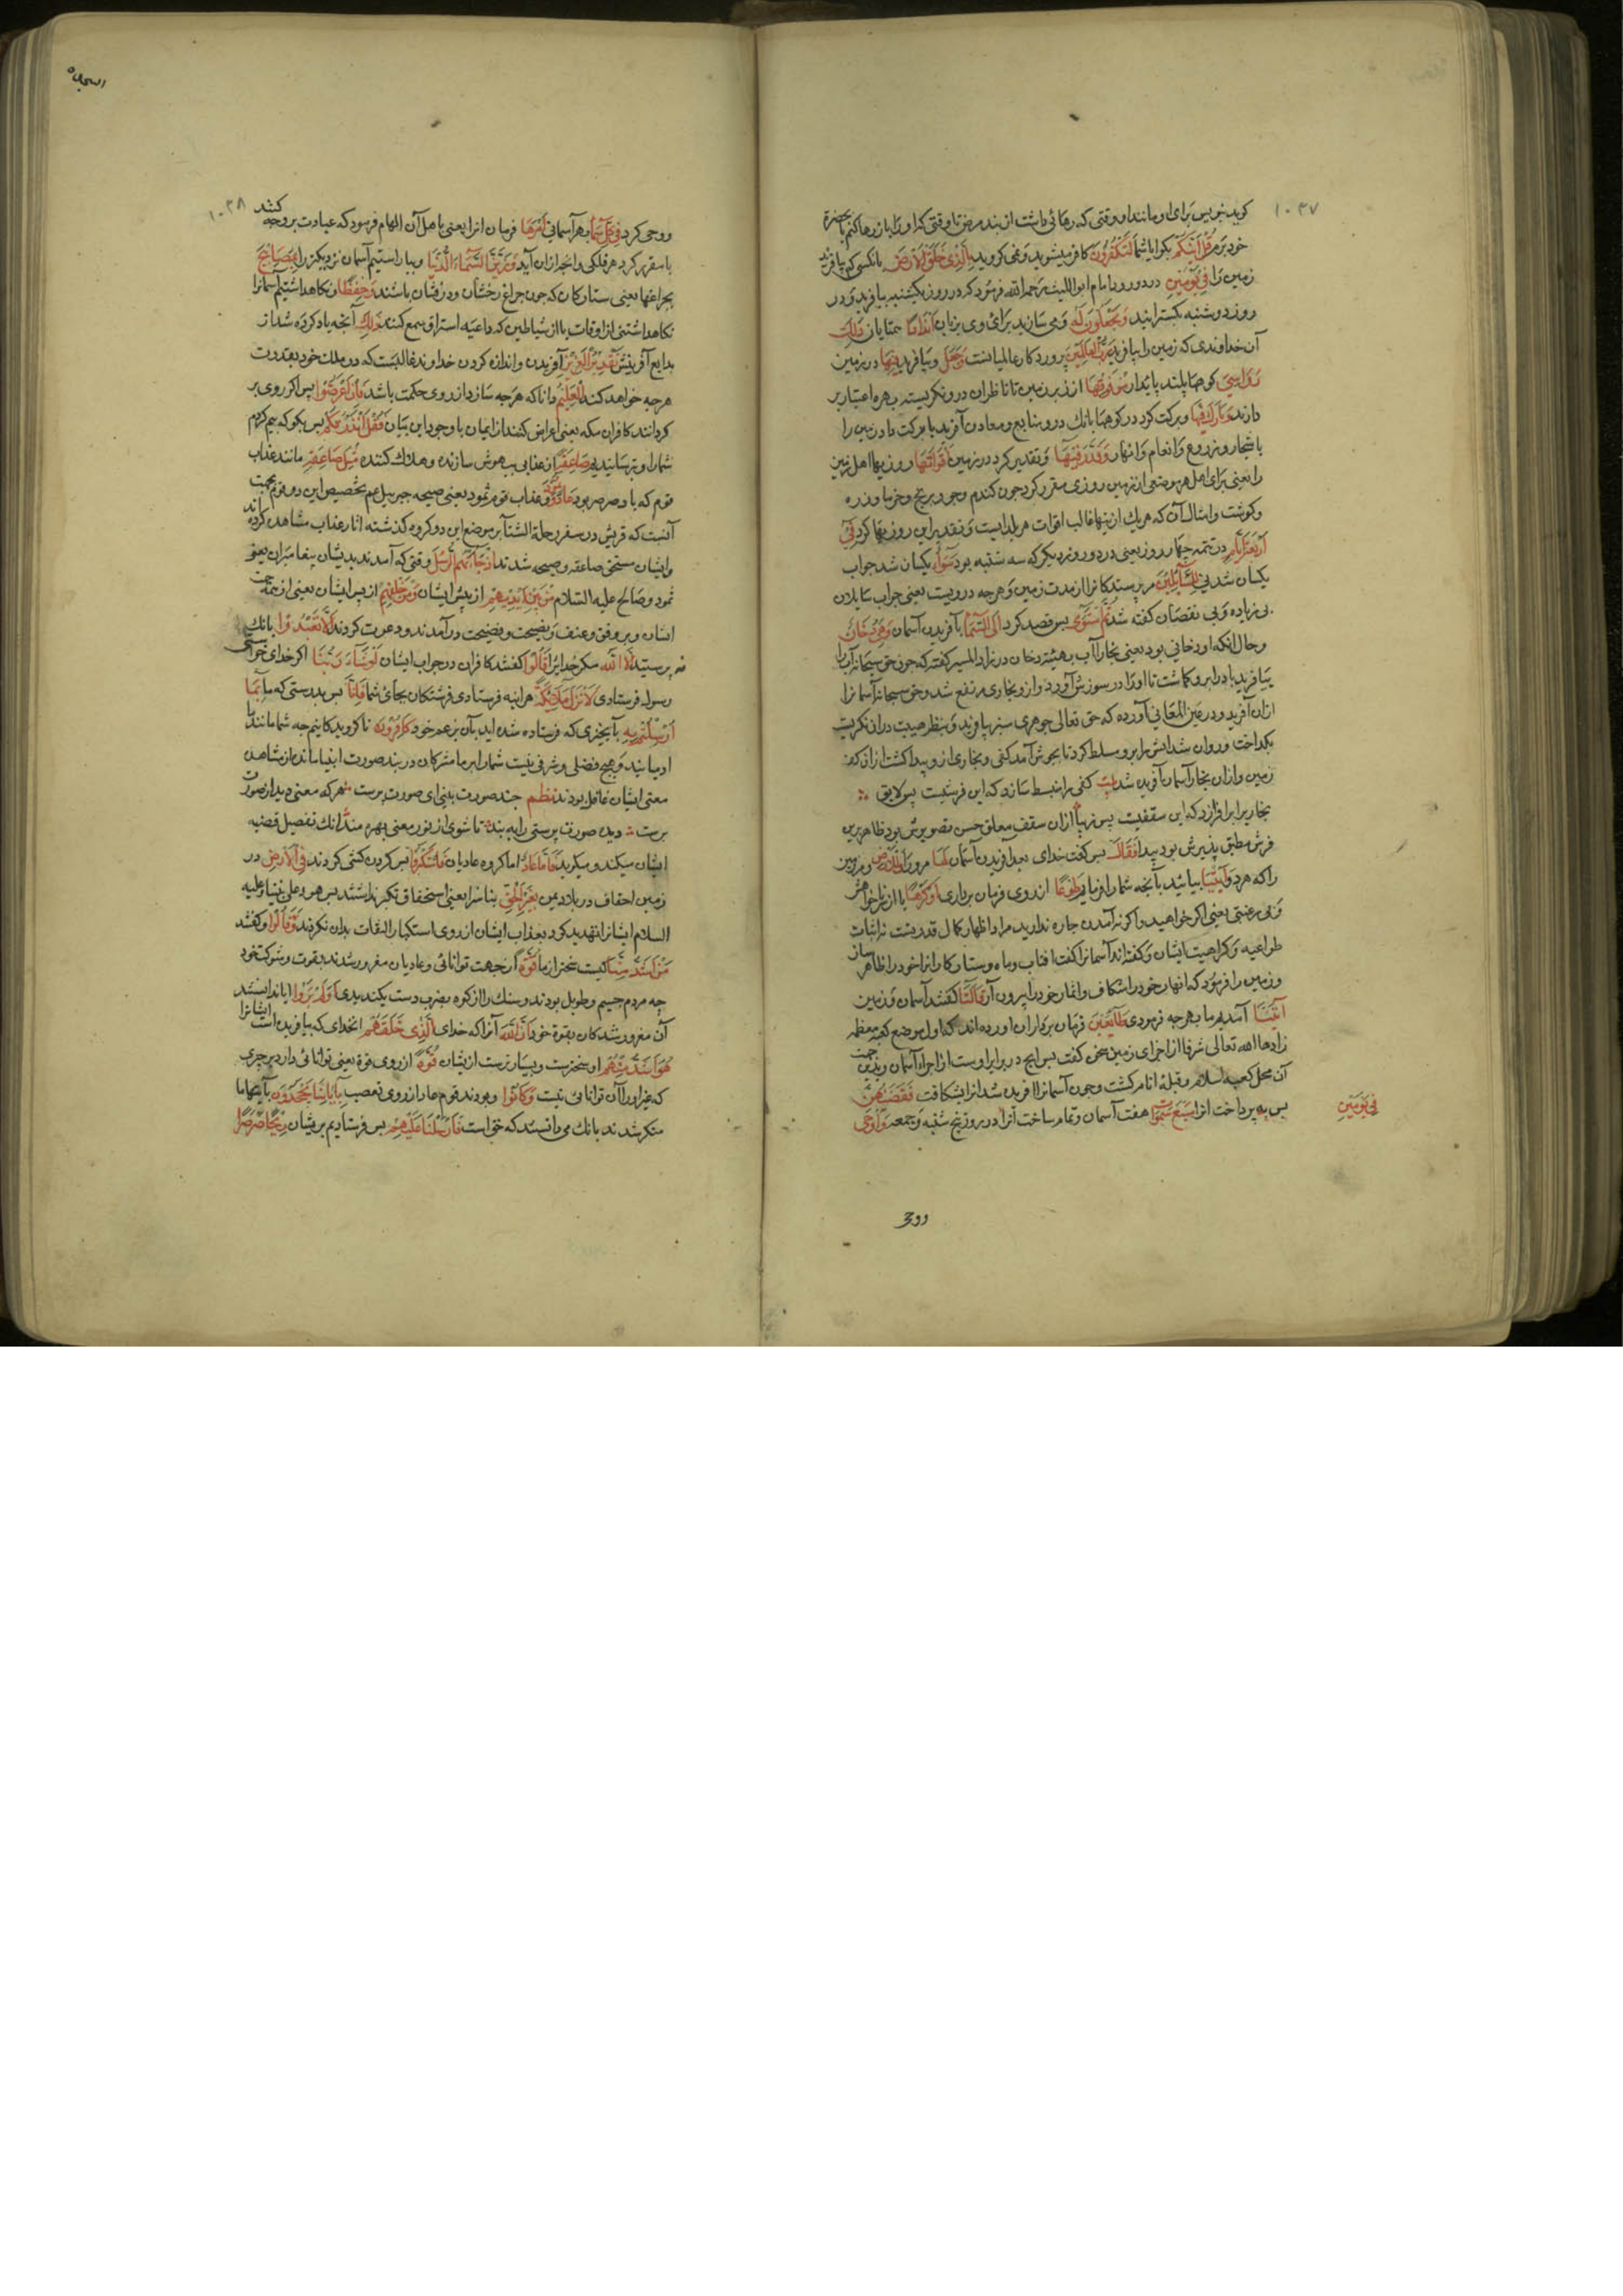 ۱۰۳۷
خود بر مر قُلْ أَئِنَّكُمْ بکو ایا شما لَتَكْفُرُونَ کافر میشوید و نمی کروید بِالَّذِي خَلَقَ الْأَرْضَ بانکسی که بیافرید
زمین را فِي يَوْمَيْنِ در دو روز امام ابو اللیث رحمه الله فرمود که در روز یکشنبه بیافرید و در
روز دوشنبه بکسترانید وَتَجْعَلُونَ لَهُ و می سازید برای وی بزبان أَنْدَادًا همتایان ذَلِكَ
آن خداوندی که زمین را بیافرید رَبُّ الْعَالَمِينَ پروردکار عالمیانست وَجَعَلَ و بیافرید فِيهَا در زمین
رَوَاسِيَ کوهها بلند پایدار مِنْ فَوْقِهَا از زبر زمین تا ناظران درو نکریسته بهره اعتبار بر
دارند وَبَارَكَ فِيهَا و برکت کرد در کوهها بانک درو منابع و معادن آفرید یا برکت داد زمین را
باشجار و زروع و انعام و انهار وَقَدَّرَ فِيهَا و تقدیر کرد در زمین أَقْوَاتَهَا روزیها اهل زمین
را یعنی برای اهل هر موضعی از زمین روزی مقرر کرد چون کندم و جو و برنج و خرما و ذره
و کوشت و امثال آن که هریک ازینها غالب اقوات هر بلدایست و تقدیر این روزیها کرد فِي
أَرْبَعَةِ أَيَّامٍ در تتمه چهار روز یعنی در دو روز دیکر که سه شنبه بود سَوَاءً یکسان شد جواب
یکسان شدنی لِلسَّائِلِينَ مر پرسندکانرا از مدت زمین و هرچه درویست یعنی جواب سایلان
بی زیاده و بی نقصان کفته شد ثُمَّ اسْتَوَى پس قصد کرد إِلَى السَّمَاءِ بآفریدن آسمان وَهِيَ دُخَانٌ
و حال انکه او دخانی بود یعنی بخار آب بهیئت دخان در زاد المسیر کفته که چون حق سبحانه آب را
بیافرید باد را برو کماشت تا اورا در سوزش آورد و ازو بخاری مرتفع شد و حق سبحانه آسمانرا
ازان آفرید و در عین المعانی آورده که حق تعالی جوهری سبز بیافرید و بنظر هیبت دران نکریست
بکداخت و روان شد اتش را برو مسلط کرد تا بجوش آمد کفی و بخاری ازو پیدا کشت ازان کف
زمین و ازان بخار آسمان آفریده شد بیت کفی را منبسط سازد که این فرشیست بس لایق
بخاریرا برافرازد که این سقفیست بس زیبا ازان سقف معلق حسن تصویرش بود ظاهر برین
فرش مطبق پذیرش بود پیدا فَقَالَ پس کفت خدای بعد آفریدن آسمان لَهَا مر ورا وَلِلْأَرْضِ و مر زمین
را که هر دو ائْتِيَا بیائید بآنچه شما را فرمایم طَوْعًا از روی فرمان برداری أَوْ كَرْهًا یا از نا خواهش
و بی رغبتی یعنی اکر خواهید و اکر نه آمدن چاره ندارید مراد اظهار کمال قدرتست نه اثبات
طواعیه و کراهیت ایشان و کفته اند آسمانرا کفت افتاب و ماه و ستارکانرا خود را ظاهر ساز
و زمین را فرمود که انهار خود را شکاف و اثمار خود را بیرون آر قَالَتَا کفتند آسمان و زمین
أَتَيْنَا آمدیم ما بهر چه فرمودی طَائِعِينَ فرمان برداران آورده اند که اول موضع کعبه معظمه
زادها الله تعالی شرفا از اجزای زمین سخن کفت پس انچ در برابر اوست از اجزاء آسمان و زین جهت
آن محل کعبه اسلام و قبله انام کشت و چون آسمانرا آفریده شد انرا بشکافت فَقَضَاهُنَّ
پس پرداخت انرا سَبْعَ سَمَوَاتٍ هفت آسمان و تمام ساخت آنرا در روز پنج شنبه و جمعه وَأَوْحَى
فِي يَوْمَيْنِ
ووح
۱۰۳۸
و وحی کرد فِي كُلِّ سَمَاءٍ بهر آسمانی أَمْرَهَا فرمان انرا یعنی باهل آن الهام فرمود که عبادت بر وجه کنند
یا مقرر کرد هر فلکی را انچه ازان آید وَزَيَّنَّا السَّمَاءَ الدُّنْيَا و بیاراستیم آسمان نزدیکتر را بِمَصَابِيحَ
بچراغها یعنی ستارکان که چون چراغ رخشان و درفشان باشند وَحِفْظًا و نکاهداشتیم آسمانرا
نکاهداشتنی از اوقات یا از شیاطین که داعیه استراق سمع کنند ذَلِكَ آنچه یاد کرده شد از
بدایع آفرینش تَقْدِيرُ الْعَزِيزِ آفریدن و اندازه کردن خداوند غالبست که در ملک خود بقدرت
هرچه خواهد کند الْعَلِيمِ دانا که هرچه سازد از روی حکمت باشد فَإِنْ أَعْرَضُوا پس اکر روی بر
کردانند کافران مکه یعنی اعراض کنند از ایمان با وجود این بیان فَقُلْ أَنْذَرْتُكُمْ پس بکو که بیم کردم
شما را و ترسانیدم صَاعِقَةً از عذابی بیهوش سازنده و هلاک کننده مِثْلَ صَاعِقَةِ مانند عذاب
قوم که باد صرصر بود عَادٍ وَثَمُودَ و عذاب قوم ثمود یعنی صیحه جبرییل عم تخصیص این دو قوم بجهت
آنست که قریش در سفر رحلة الشتا بر موضع این دو کروه کذشته اثار عذاب مشاهده کرده اند
و ایشان مستحق صاعقه و صیحه شدند إِذْ جَاءَتْهُمُ الرُّسُلُ وقتی که آمدند بدیشان پیغامبران یعنی
ثمود و صالح علیه السلام مِنْ بَيْنِ أَيْدِيهِمْ از پیش ایشان وَمِنْ خَلْفِهِمْ از پس ایشان یعنی از همه جهت
ایشان و برفق و عنف و نصیحت و فضیحت در آمدند و دعوت کردند أَلَّا تَعْبُدُوا بانک
نه پرستید إِلَّا اللَّهَ مکر خدایرا قَالُوا کفتند کافران در جواب ایشان لَوْ شَاءَ رَبُّنَا اکر خدای خواستی
رسول فرستادی لَأَنْزَلَ مَلَائِكَةً هراینه فرستادی فرشتکان بجای شما فَإِنَّا پس بدرستی که ما بِمَا
أُرْسِلْتُمْ بِهِ بآنچیزی که فرستاده شده اید بآن بزعم خود كَافِرُونَ ناکرویدکانیم چه شما مانند ما
ادمیانید و هیچ فضلی و شرفی نیست شما را بر ما مشرکان در بند صورت انبیا مانده از مشاهده
معنی ایشان غافل بودند نظم چند صورت بینی ای صورت پرست هر که معنی دید از صورت
برست دیده صورت پرستی را ببند تا شوی از نور معنی بهره مند انک تفصیل قضیه
ایشان میکند و میکوید فَأَمَّا عَادٌ اما کروه عادیان فَاسْتَكْبَرُوا پس کردن کشی کردند فِي الْأَرْضِ در
زمین احقاف در بلاد یمن بِغَيْرِ الْحَقِّ بناسزا یعنی استحقاق تکبر نداشتند پس هود علی نبینا و علیه
السلام ایشانرا تهدید کرد بعذاب ایشان از روی استکبار التفات بدان نکردند وَقَالُوا و کفتند
مَنْ أَشَدُّ مِنَّا کیست سختر از ما قُوَّةً از جهت توانائی و عادیان مغرور شدند بقوت و شوکت خود
چه مردم جسیم و طویل بودند و سنک را از کوه بضرب دست بکندیدی أَوَلَمْ يَرَوْا ایا ندانستند
آن مغرور شدکان بقوة خود أَنَّ اللَّهَ آنرا که خدای الَّذِي خَلَقَهُمْ انخدای که بیافریده است ایشانرا
هُوَ أَشَدُّ مِنْهُمْ او سخترست و بسیارترست ازیشان قُوَّةً از روی قوة یعنی توانائی دارد بر چیزی
که غیر اورا آن توانائی نیست وَكَانُوا و بودند قوم عاد از روی تعصب بِآيَاتِنَا يَجْحَدُونَ بآیتهاء ما
منکر شدند بانک می دانستند که حق است فَأَرْسَلْنَا عَلَيْهِمْ پس فرستادیم بریشان رِيحًا صَرْصَرًا